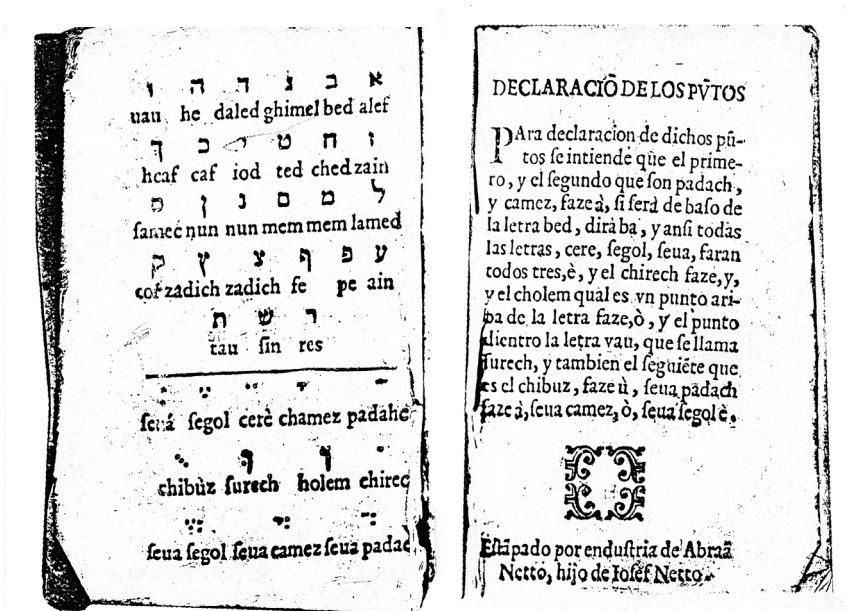 א ב ג ד ה ו
uau he daled ghimel bed alef
ז ח ט י כ ך
hcaf caf iod ted ched zain
ל מ ם נ ן ס
ſamec nun nun mem mem lamed
ע פ ף צ ץ ק
cof zadich zadich fe pe ain
ר ש ת
tau ſin res
ſeuá ſegol cerè chamez padahc
chibùz ſurech holem chirec
ſeua ſegol ſeua camez ſeua padac
DECLARACIÕ DE LOS PṼTOS
PAra declaracion de dichos pũ-
tos ſe intiende que el prime-
ro, y el ſegundo que ſon padach,
y camez, faze à, ſi ſerà de baſo de
la letra bed, dirà ba, y anſi todàs
las letras, cere, ſegol, ſeua, faran
todos tres, è, y el chirech faze, y,
y el cholem qual es vn punto ari-
ba de la letra faze, ò, y el punto
dientro la letra vau, que ſe llama
ſurech, y tambien el ſeguiẽte que
es el chibuz, faze ù, ſeua padach
faze à, ſeua camez, ò, ſeua ſegol è.
Eſtãpado por enduſtria de Abraã
Netto, hijo de Ioſef Netto.